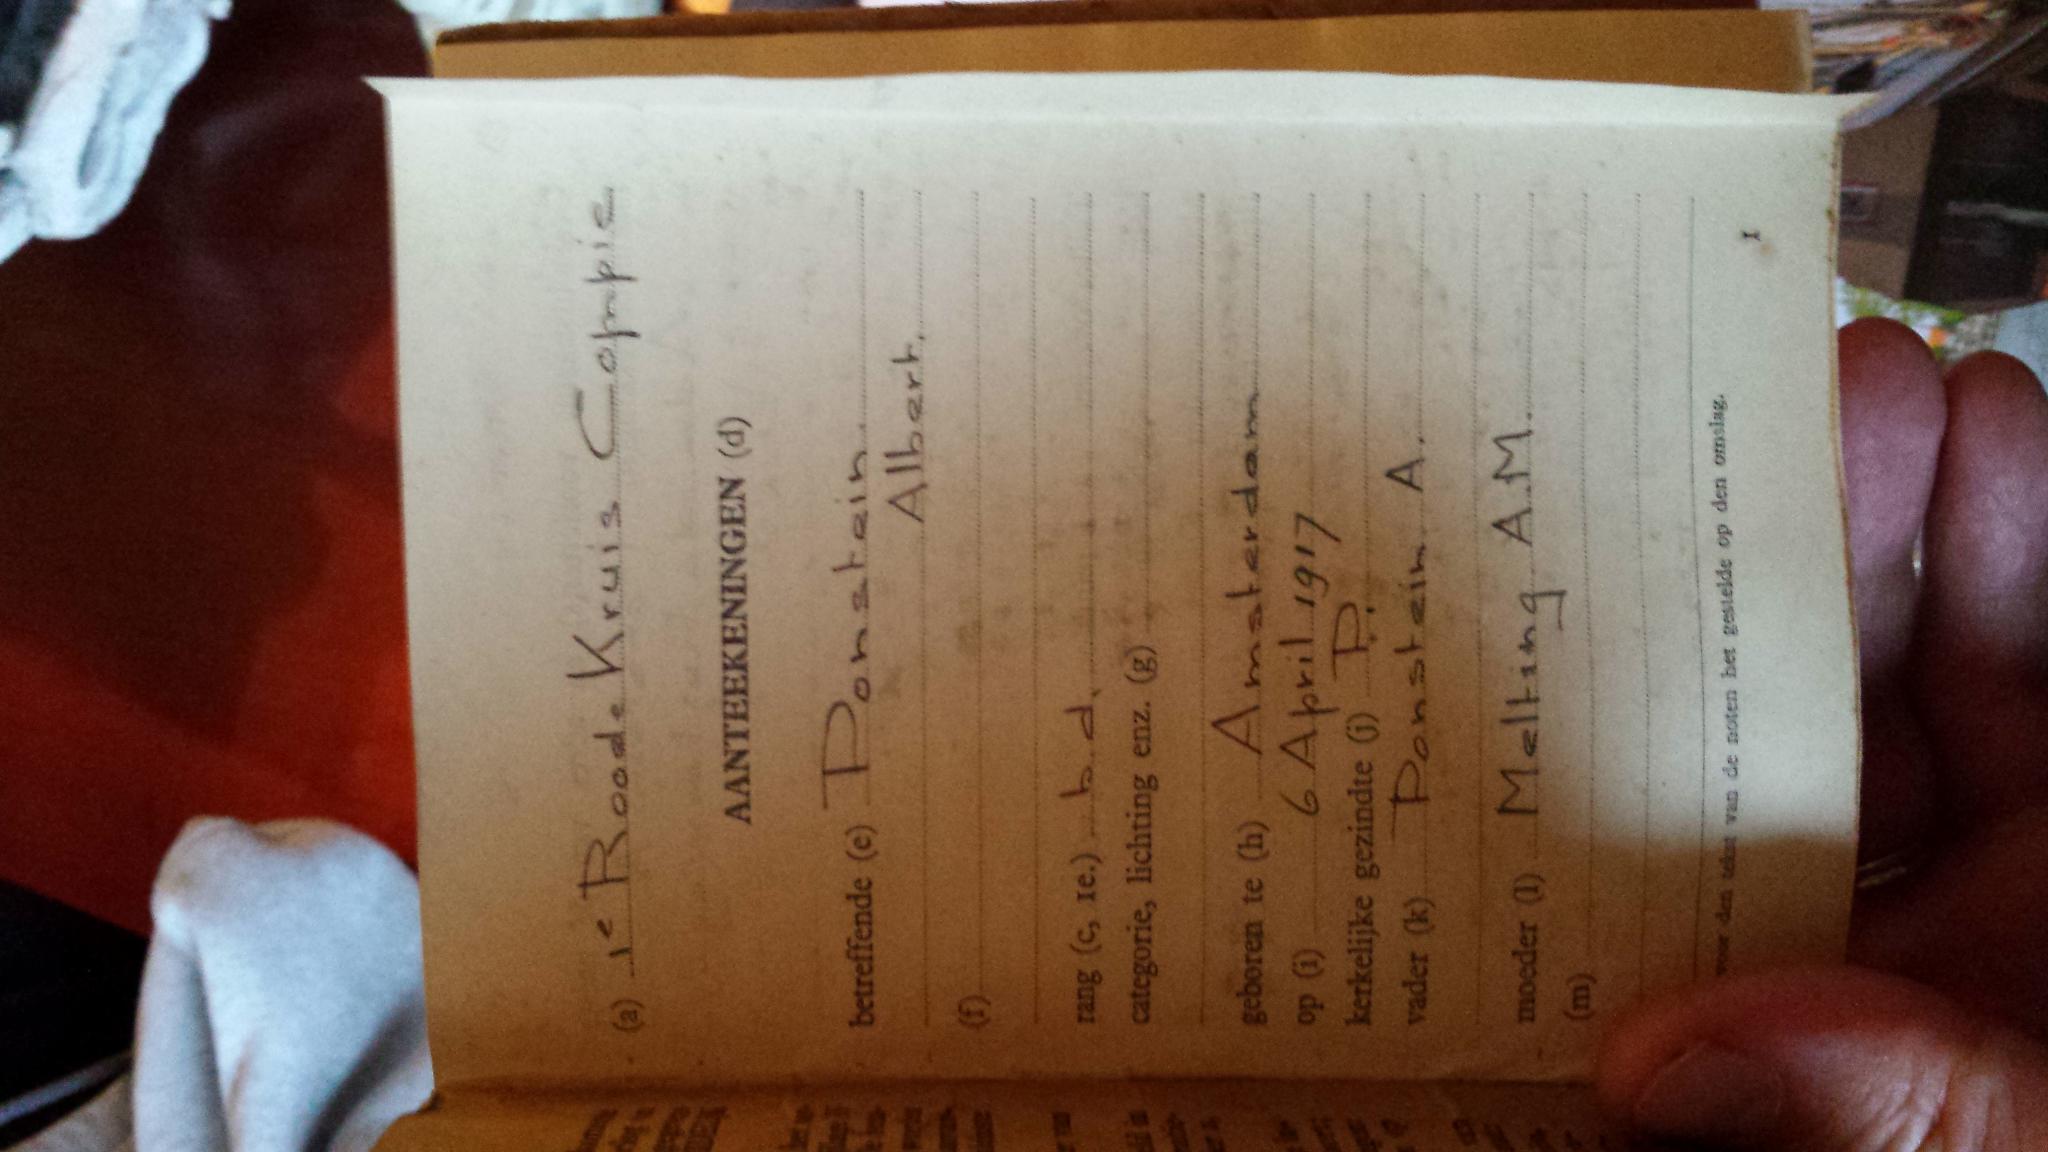 (a) 1e Roode Kruis Compie
AANTEEKENINGEN (d)
betreffende (e) Ponstein
Albert.
(f)
rang (c, 1e.) b.d.
categorie, lichting enz. (g)
geboren te (h) Amsterdam
op (i) 6 April 1917
kerkelijke gezindte (j) P.
vader (k) Ponstein A.
moeder (l) Melting A.M.
(m)
voor den tekst van de noten het gestelde op den omslag.
1